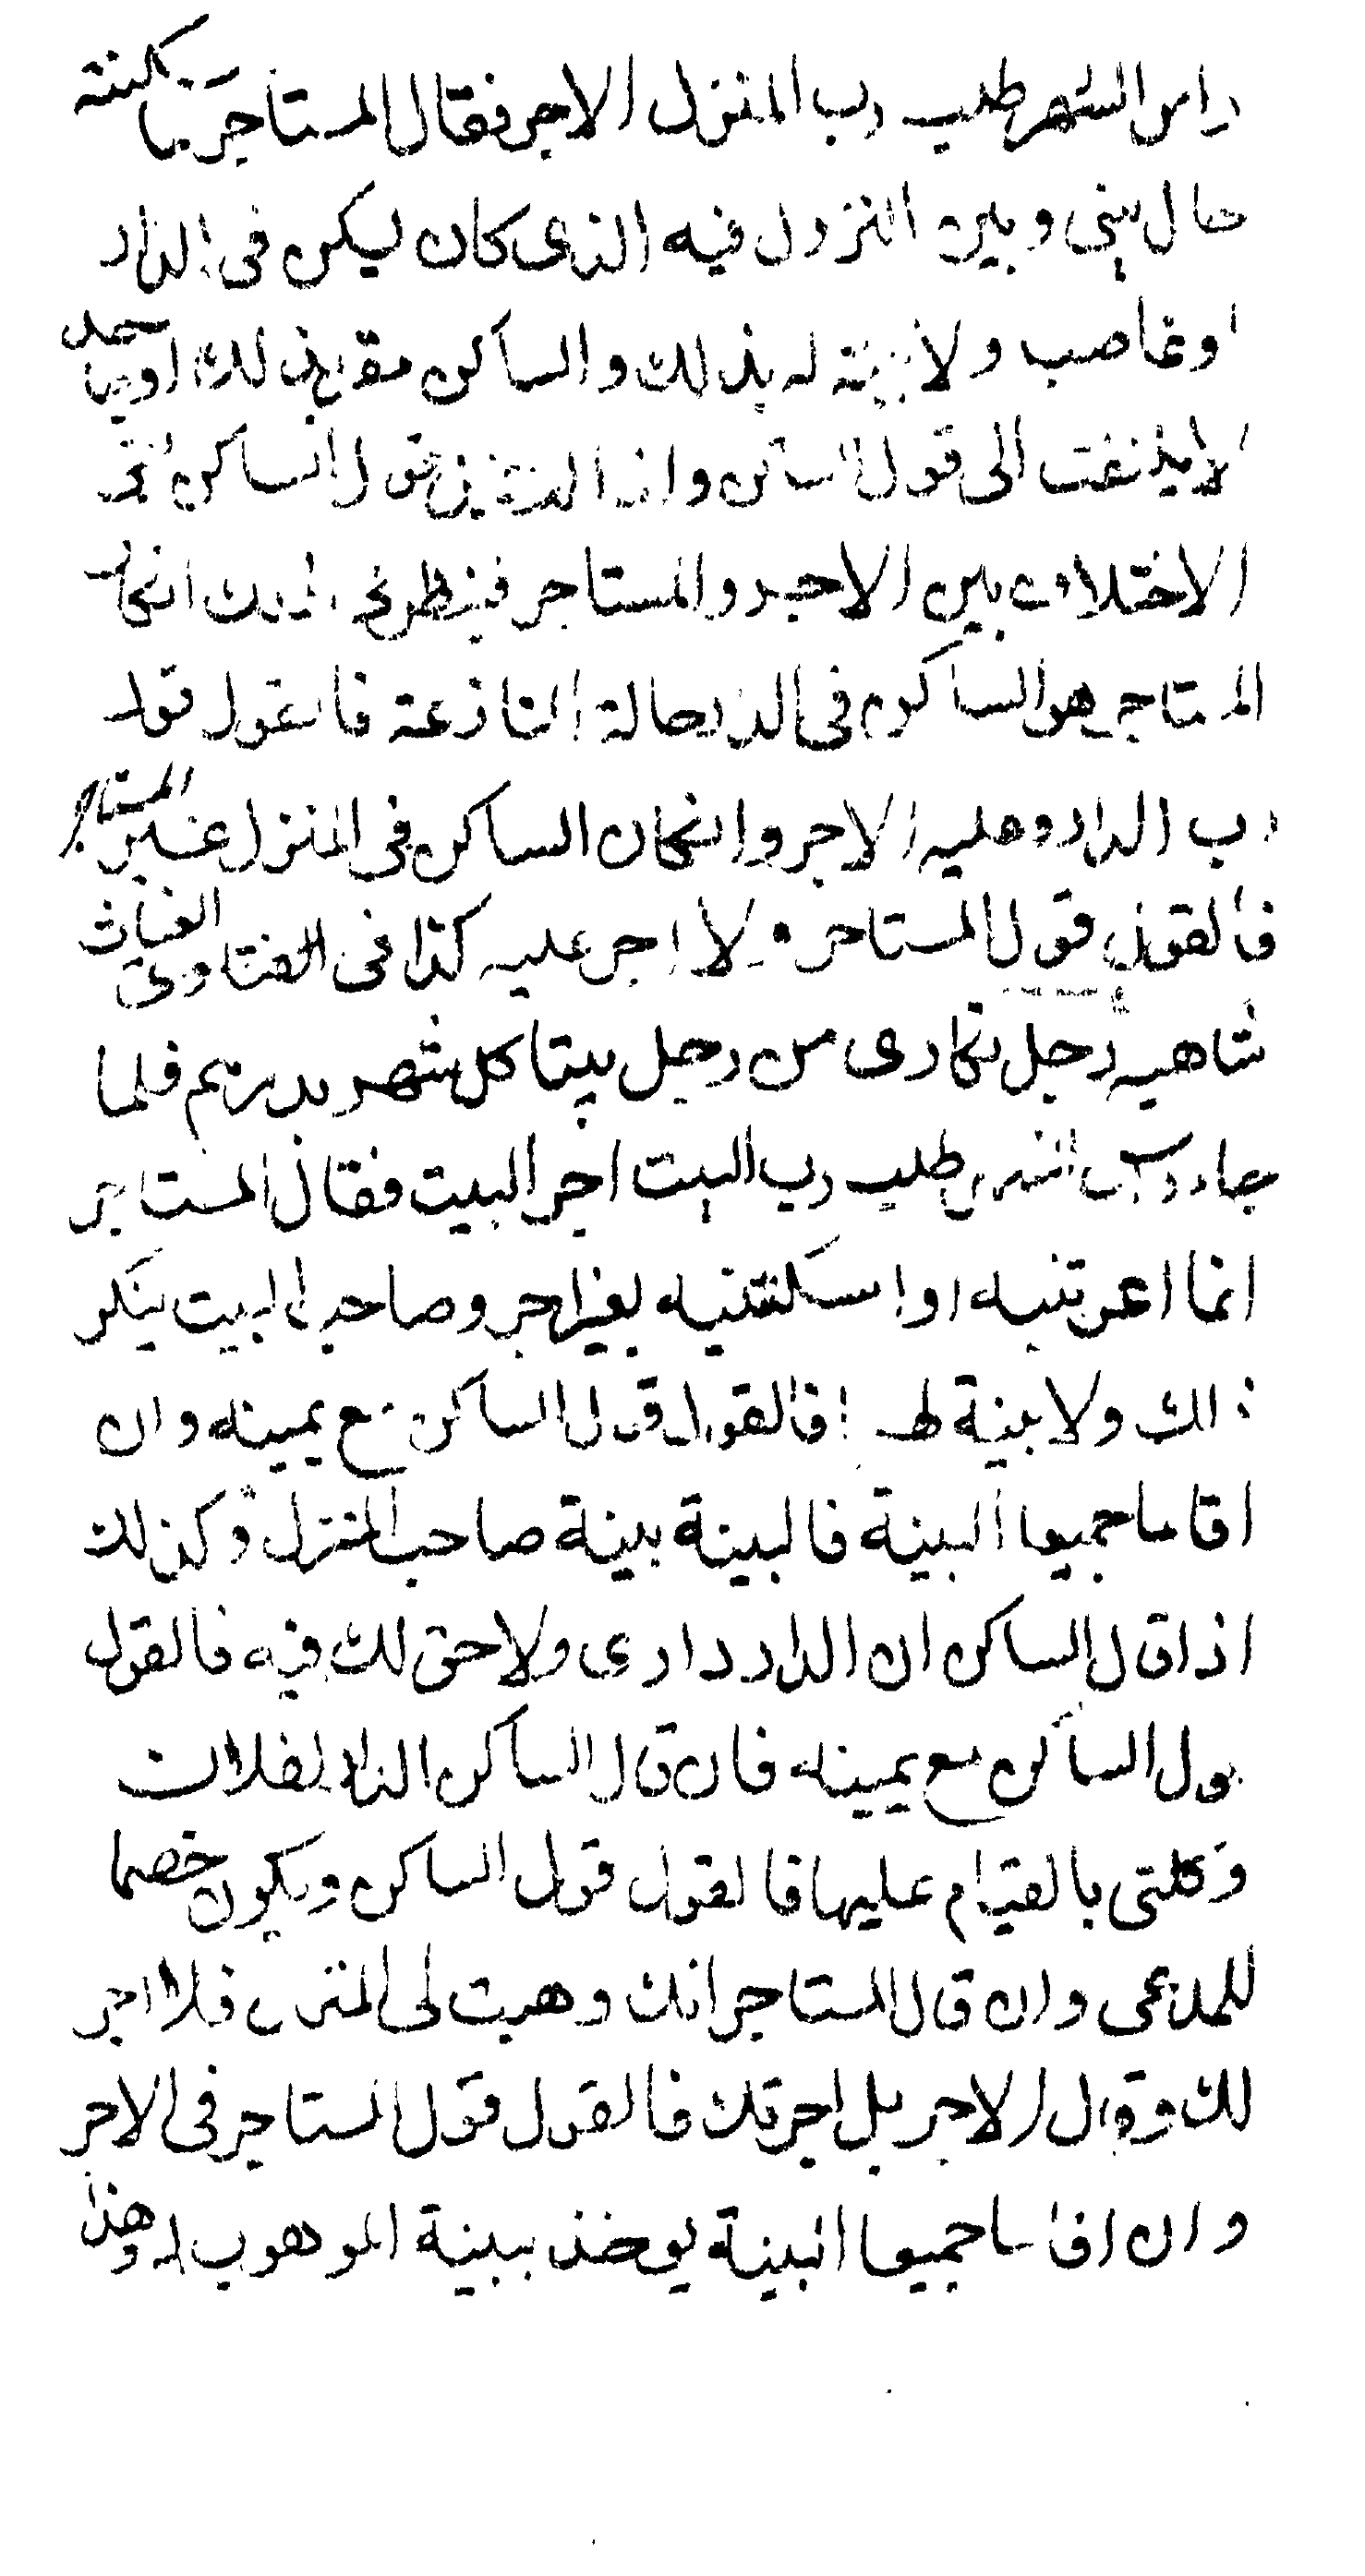 راس الشهر طلب رب المنزل الاجر فقال المستاجر ما سكنته
حال بيني وبين النزول فيه الذي كان يسكن في الدار
او غاصب ولا بينة له بذلك والساكن مقر بذلك او جاحد
لا يلتفت الى قول الساكن واذا لم يلتفت قول الساكن بقي
الاختلاف بين الاجر والمستاجر فينظر في ذلك ان كان
المستاجر هو الساكن في الدار حالة المنازعة فالقول قول
رب الدار وعليه الاجر وان كان الساكن في المنزل غير المستاجر
فالقول قول المستاجر ولا اجر عليه كذا في الفتاوى الغياثية
شاهيه رجل تكارى من رجل بيتا كل شهر بدرهم فلما
جاء راس الشهر طلب رب البيت اجر البيت فقال المستاجر
انما اعرتنيه او اسكنتنيه بغير اجر وصاحب البيت ينكر
ذلك ولا بينة لهما فالقول قول الساكن مع يمينه وان
اقاما جميعا البينة فالبينة بينة صاحب المنزل وكذلك
اذا قال الساكن ان الدار داري ولا حق لك فيه فالقول
قول الساكن مع يمينه فان قال الساكن الدار لفلان
وكلني بالقيام عليها فالقول قول الساكن ويكون خصما
للمدعي وان قال المستاجر انك وهبت لي المنزل فلا اجر
لك وقال الاجر بل اجرتك فالقول قول المستاجر في الاجر
وان اقاما جميعا البينة يوخذ ببينة الموهوب له وهذا